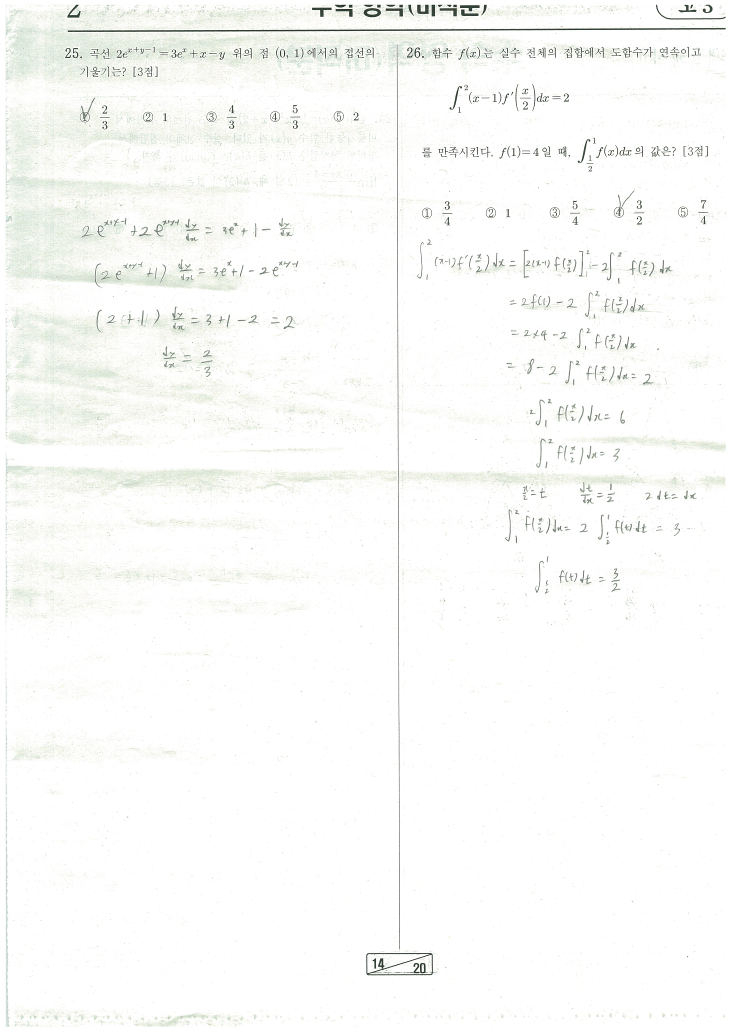 2
수학 영역(미적분)
고 3
25. 곡선 2e^{x+y-1}=3e^x+x-y 위의 점 (0, 1)에서의 접선의
기울기는? [3점]
① 2/3 ② 1 ③ 4/3 ④ 5/3 ⑤ 2
2e^{x+y-1}+2e^{x+y-1} dy/dx = 3e^x+1- dy/dx
(2e^{x+y-1}+1) dy/dx = 3e^x+1-2e^{x+y-1}
(2+1) dy/dx = 3+1-2 = 2
dy/dx = 2/3
26. 함수 f(x)는 실수 전체의 집합에서 도함수가 연속이고
∫_1^2 (x-1)f'(x/2)dx=2
를 만족시킨다. f(1)=4일 때, ∫_{1/2}^1 f(x)dx의 값은? [3점]
① 3/4 ② 1 ③ 5/4 ④ 3/2 ⑤ 7/4
∫_1^2 (x-1)f'(x/2)dx = [2(x-1)f(x/2)]_1^2 - 2∫_1^2 f(x/2)dx
= 2f(1) - 2 ∫_1^2 f(x/2)dx
= 2×4 - 2 ∫_1^2 f(x/2)dx
= 8 - 2 ∫_1^2 f(x/2)dx = 2
2∫_1^2 f(x/2)dx = 6
∫_1^2 f(x/2)dx = 3
x/2 = t dt/dx = 1/2 2dt = dx
∫_1^2 f(x/2)dx = 2 ∫_{1/2}^1 f(t)dt = 3
∫_{1/2}^1 f(t)dt = 3/2
14 20